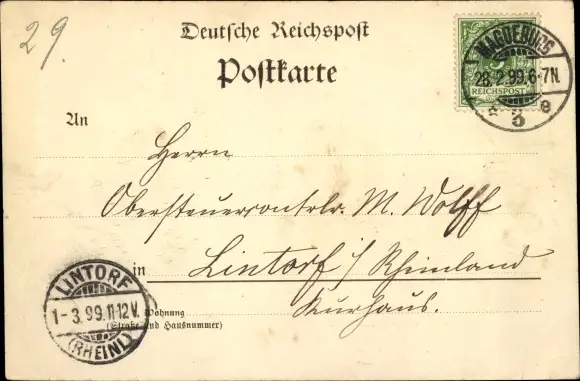 29.
Deutsche Reichspost
Postkarte
MAGDEBURG
28.2.99.6-7N.
REICHSPOST
* 3 e
An
Herrn
Obersteuercontrlr. M. Wolff
in Lintorf i/ Rheinland
Kurhaus.
LINTORF
1-3.99.11-12V.
(RHEINL)
Wohnung
(Straße und Hausnummer)